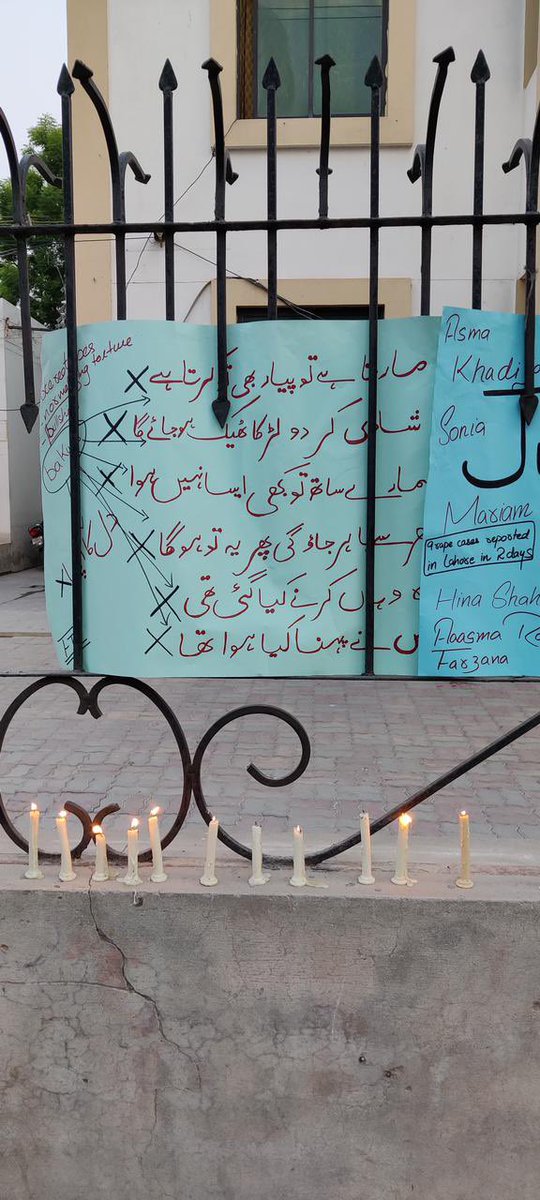 مارتا ہے تو پیار بھی تو کرتا ہے
شادی کر دو لڑکا ٹھیک ہو جائے گا
ہمارے ساتھ تو کبھی ایسا نہیں ہوا
باہر جاؤ گی پھر یہ تو ہو گا
وہاں کرنے کیا گئی تھی
نے پہنا کیا ہوا تھا
normalizing torture
Asma
Khadij
Sonia
Mariam
9 rape cases reported
in Lahore in 2 days
Hina Shah
Aasma
Farzana